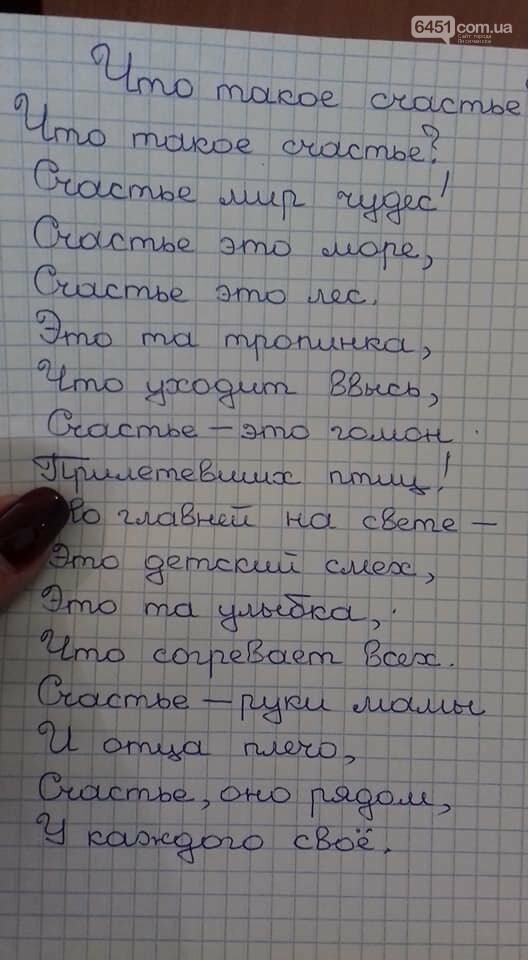 6451.com.ua
Сайт города
Лисичанска
Что такое счастье
Что такое счастье?
Счастье мир чудес!
Счастье это море,
Счастье это лес.
Это та тропинка,
Что уходит ввысь,
Счастье – это гомон
Прилетевших птиц!
главней на свете –
Это детский смех,
Это та улыбка,
Что согревает всех.
Счастье – руки мамы
И отца плечо,
Счастье, оно рядом,
У каждого своё.